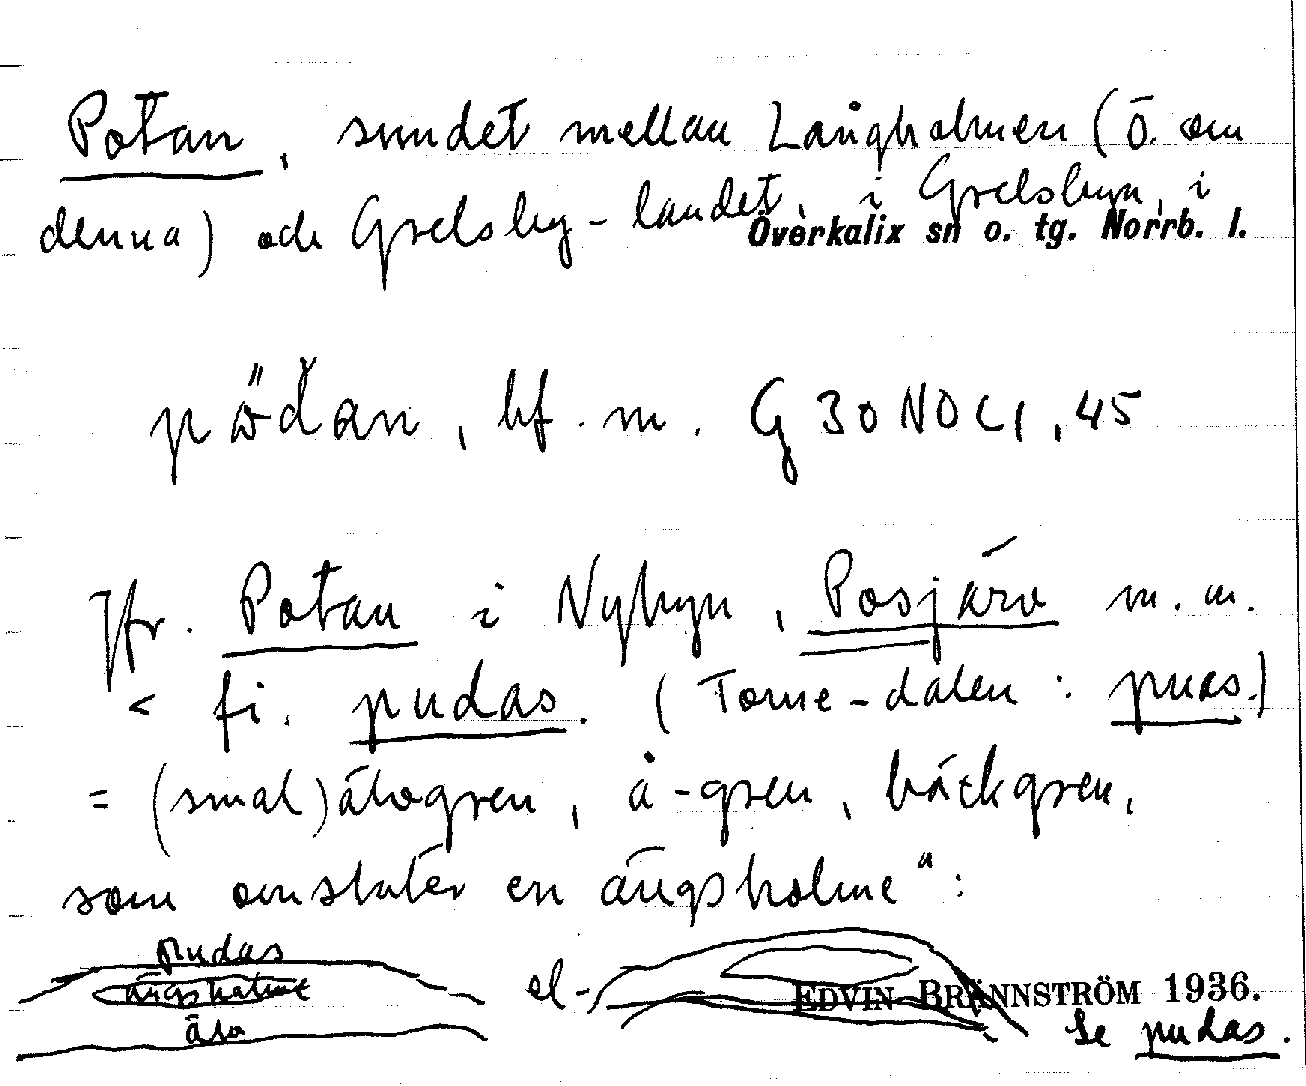 Potan, sundet mellan Långholmen (Ö. om
denna) och Grelsby-landet, i Grelsbyn, i
Överkalix sn o. tg. Norrb. l.
pödan, bf. m. G 30 NO C1, 45
Jfr. Potan i Nybyn, Posjärv m. m.
< fi. pudas. (Torne-dalen: puas.)
= (smal) älvgren, å-gren, bäckgren,
som omsluter en ängsholme":
Pudas
ängsholme
älv
el.
EDVIN BRÄNNSTRÖM 1936.
Se pudas.